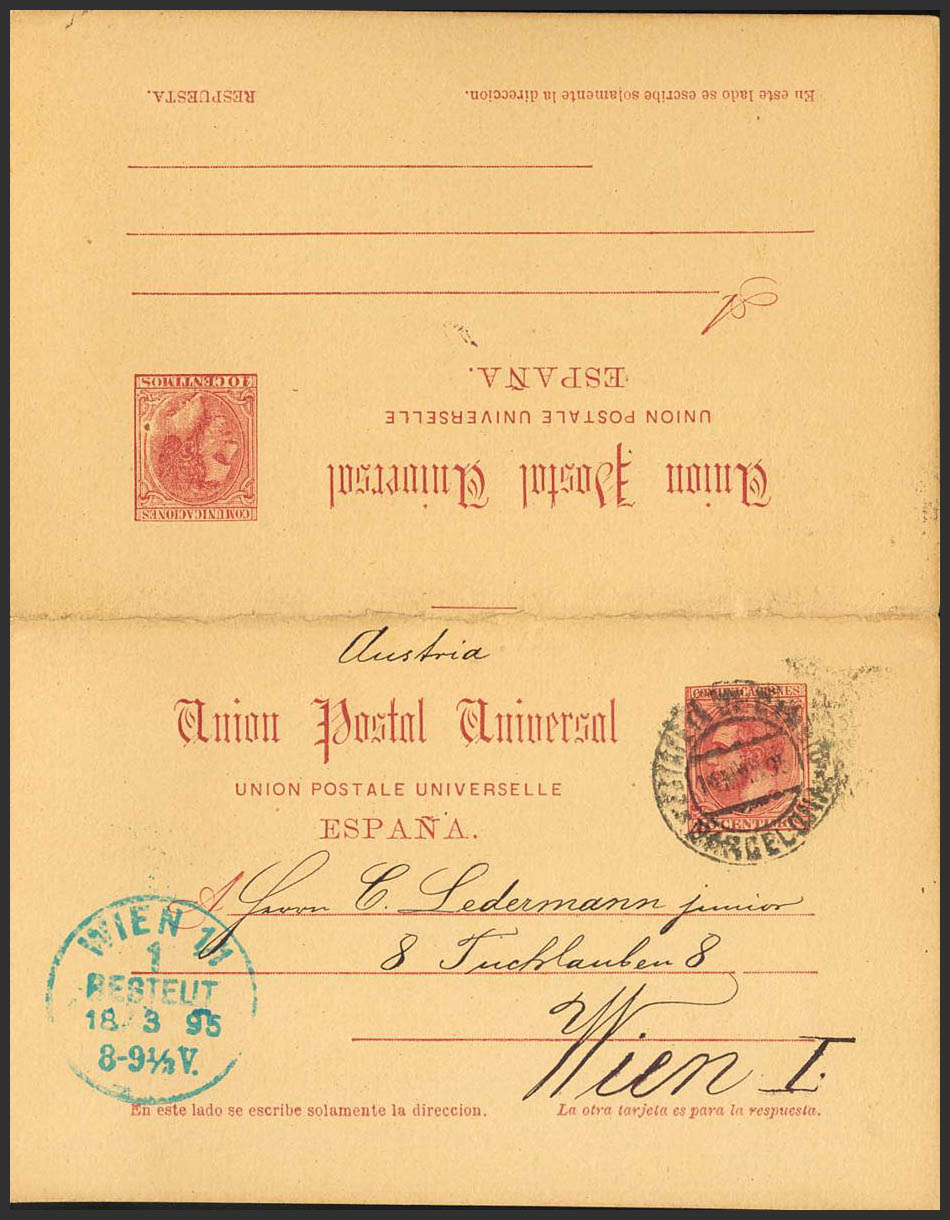 RESPUESTA.
En este lado se escribe solamente la direccion.
A
ESPAÑA.
UNION POSTALE UNIVERSELLE
Union Postal Universal
COMUNICACIONES
10 CENTIMOS
Austria
Union Postal Universal
UNION POSTALE UNIVERSELLE
ESPAÑA.
COMUNICACIONES
BARCELONA
A Herrn C. Ledermann junior
8 Tuchlauben 8
Wien I.
WIEN 1/1
1
BESTELLT
18 3 95
8-9½V.
En este lado se escribe solamente la direccion.
La otra tarjeta es para la respuesta.